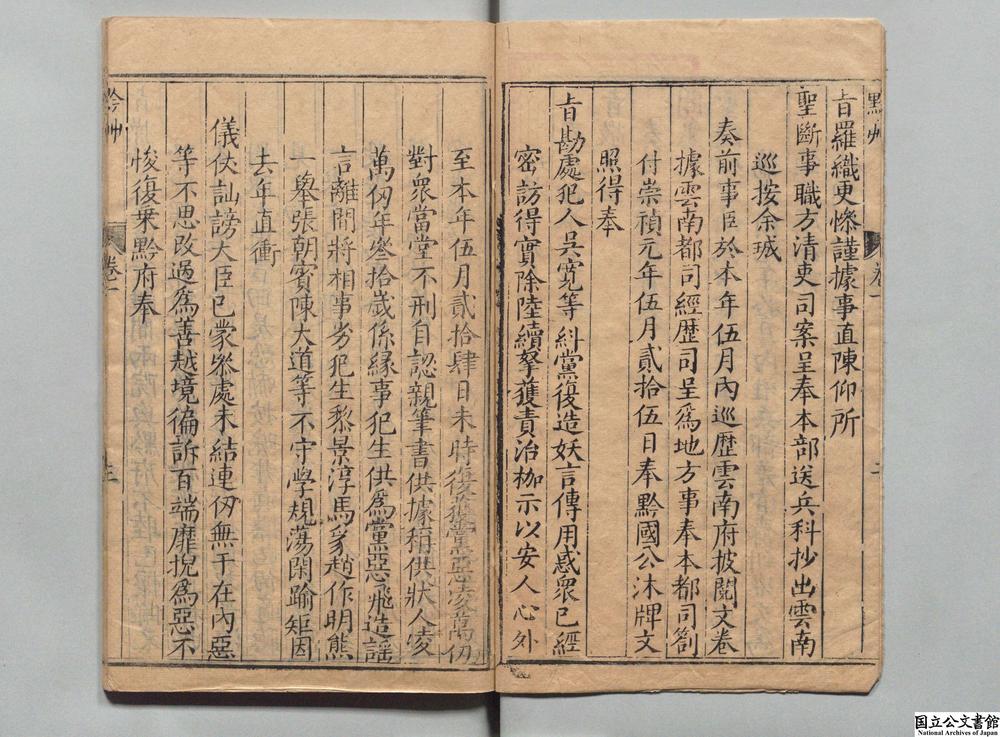 黔艸
卷一
二
旨羅織更慘謹據事直陳仰祈
聖斷事職方清吏司案呈奉本部送兵科抄出雲南
巡按余瑊
奏前事臣於本年伍月內巡歷雲南府披閱文卷
據雲南都司經歷司呈爲地方事奉本都司劄
付崇禎元年伍月貳拾伍日奉黔國公沐牌文
照得奉
旨勘處犯人吳寬等糾黨復造妖言傳用惑衆已經
密訪得實除陸續拏獲責治枷示以安人心外
至本年伍月貳拾肆日未時復獲黨惡凌萬仭
對衆當堂不刑自認親筆書供據稱供狀人凌
萬仭年叄拾歲係緣事犯生供爲黨惡飛造謡
言離間將相事劣犯生黎景淳馬豸趙作明熊
一舉張朝賓陳大道等不守學規蕩閑踰矩因
去年直衝
儀仗訕謗大臣已蒙叅處未結連仭無干在內惡
等不思改過爲善越境徧訴百端靡挽爲惡不
悛復乗黔府奉
黔艸
卷一
国立公文書館
National Archives of Japan